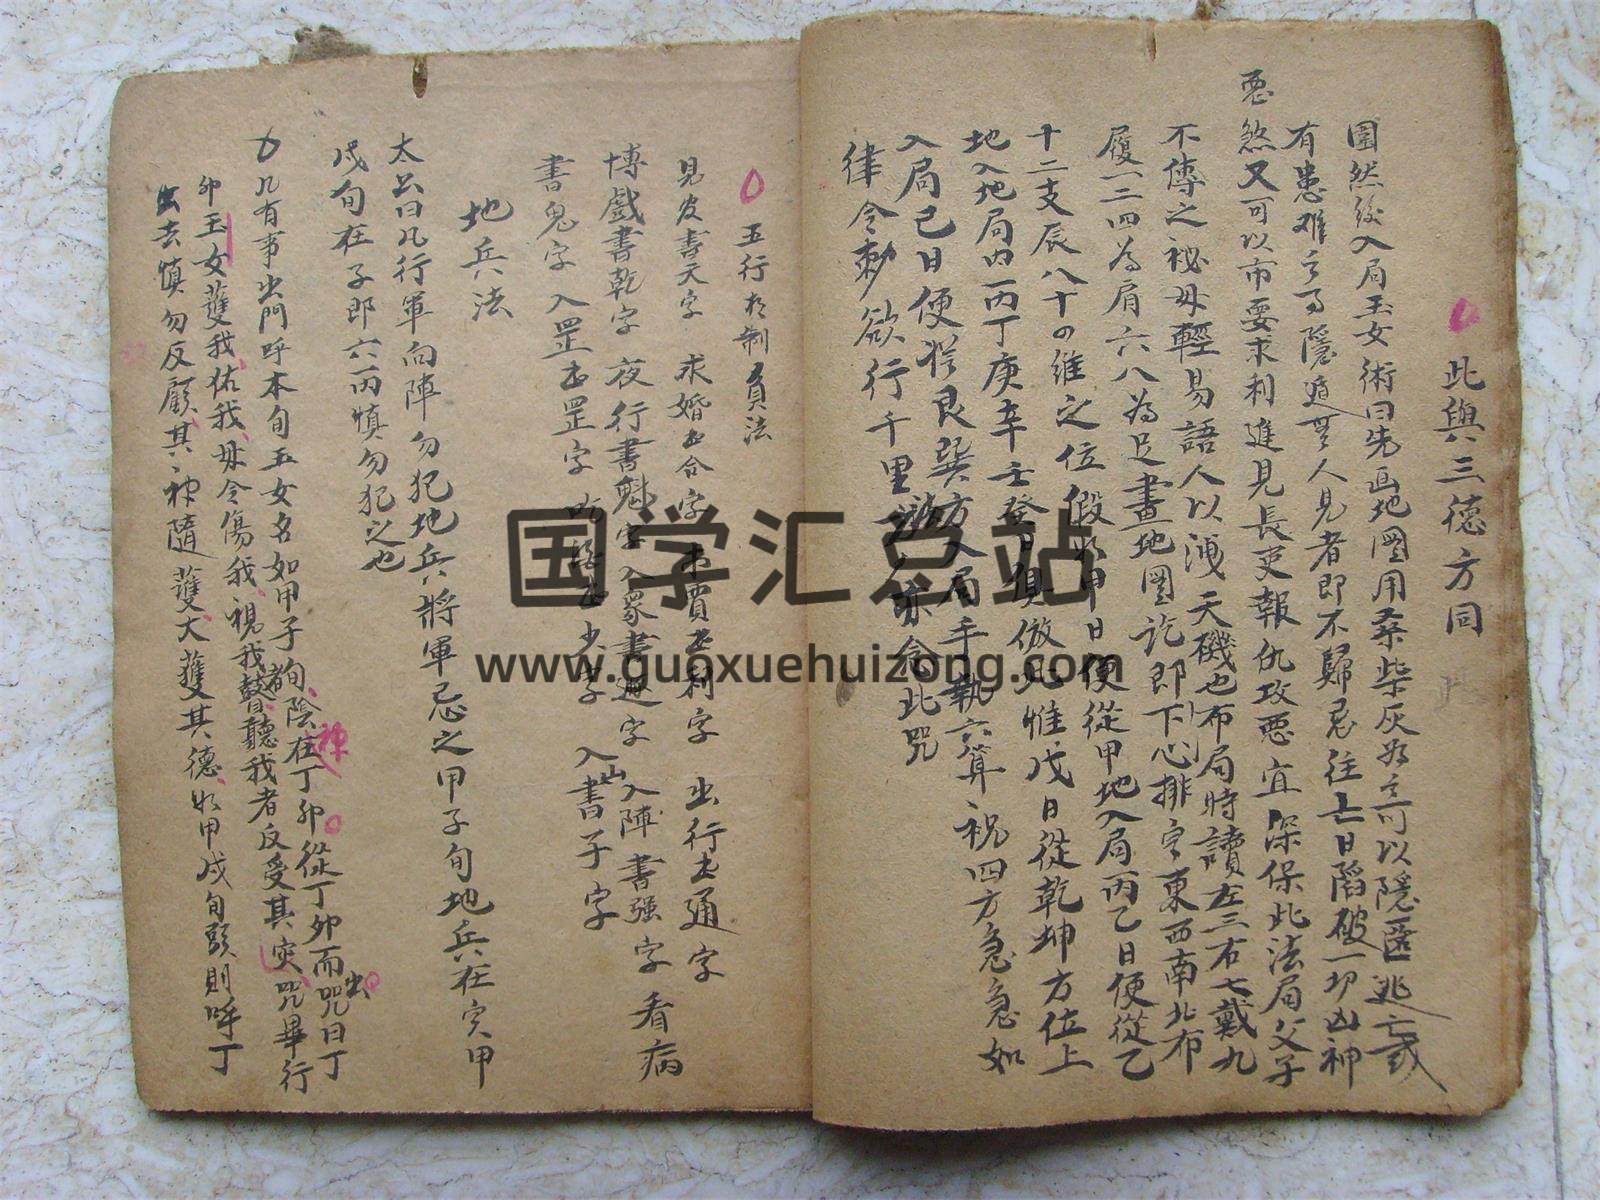 此與三德方同
圍然後入局玉女術曰先画地圖用桑柴灰為之可以隱匿逃亡或
有患难之事隱遁無人見者即不歸忌往亡日陷破一切凶神
惡煞又可以市要求利進見長吏報仇攻惡宜深保此法局父子
不傳之祕毋輕易語人以洩天磯也布局時讀左三右七戴九
履一二四為肩六八為足畫地圖訖即下心排字東西南北布
十二支辰八干四維之位假如甲日便從甲地入局丙乙日便從乙
地入地局内丙丁庚辛壬癸日俱倣此惟戊日從乾坤方位上
入局己日便從艮巽方入局手執六算祝四方急急如
律令勅欲行千里亦念此咒
五行相制員法
見皮書天字 求婚書合字 求賈書利字 出行書通字
博戲書乾字 夜行書魁字入家書遁字 入陣書强字 看病
書鬼字 入罡書罡字 書少字 入山書子字
地兵法
太公曰凡行軍向陣勿犯地兵將軍忌之甲子旬地兵在寅甲
戌旬在子即六丙慎勿犯之也
凡有事出門呼本旬玉女名如甲子旬陰神在丁卯從丁卯而出咒曰丁
卯玉女護我佑我毋令傷我視我者瞽聽我者反受其災咒畢行
出去慎勿反顧其神隨護大護其德如甲戌旬頭則呼丁
国学汇总站
www.guoxuehuizong.com